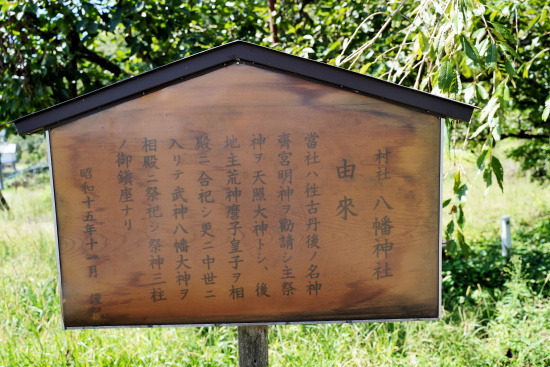 村社 八幡神社
由來
當社ハ性古丹後ノ名神
齋宮明神ヲ勸請シ主祭
神ヲ天照大神トシ、後
地主荒神麿子皇子ヲ相
殿ニ合祀シ更ニ中世ニ
入リテ武神八幡大神ヲ
相殿ニ祭祀シ祭神三柱
ノ御鎮座ナリ
昭和十五年十一月